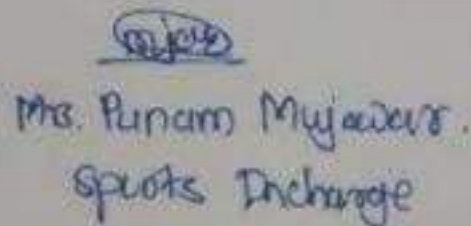 Mrs. Punam Mujawar.
Sports Incharge